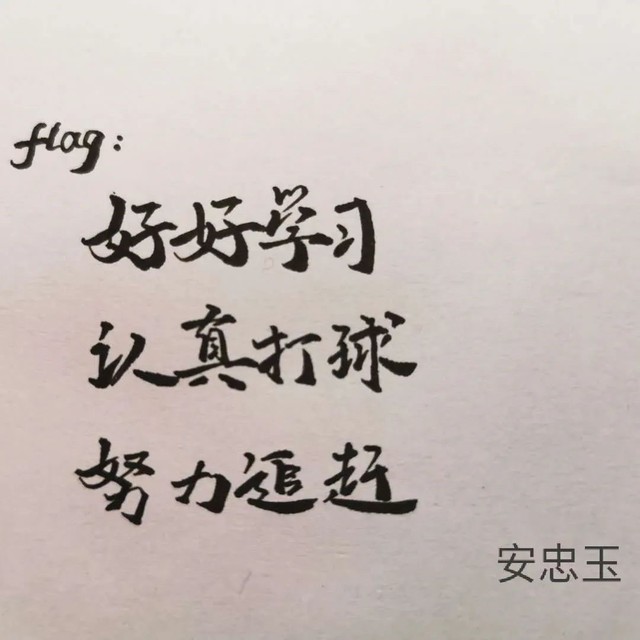 flag:
好好学习
认真打球
努力追赶
安忠玉